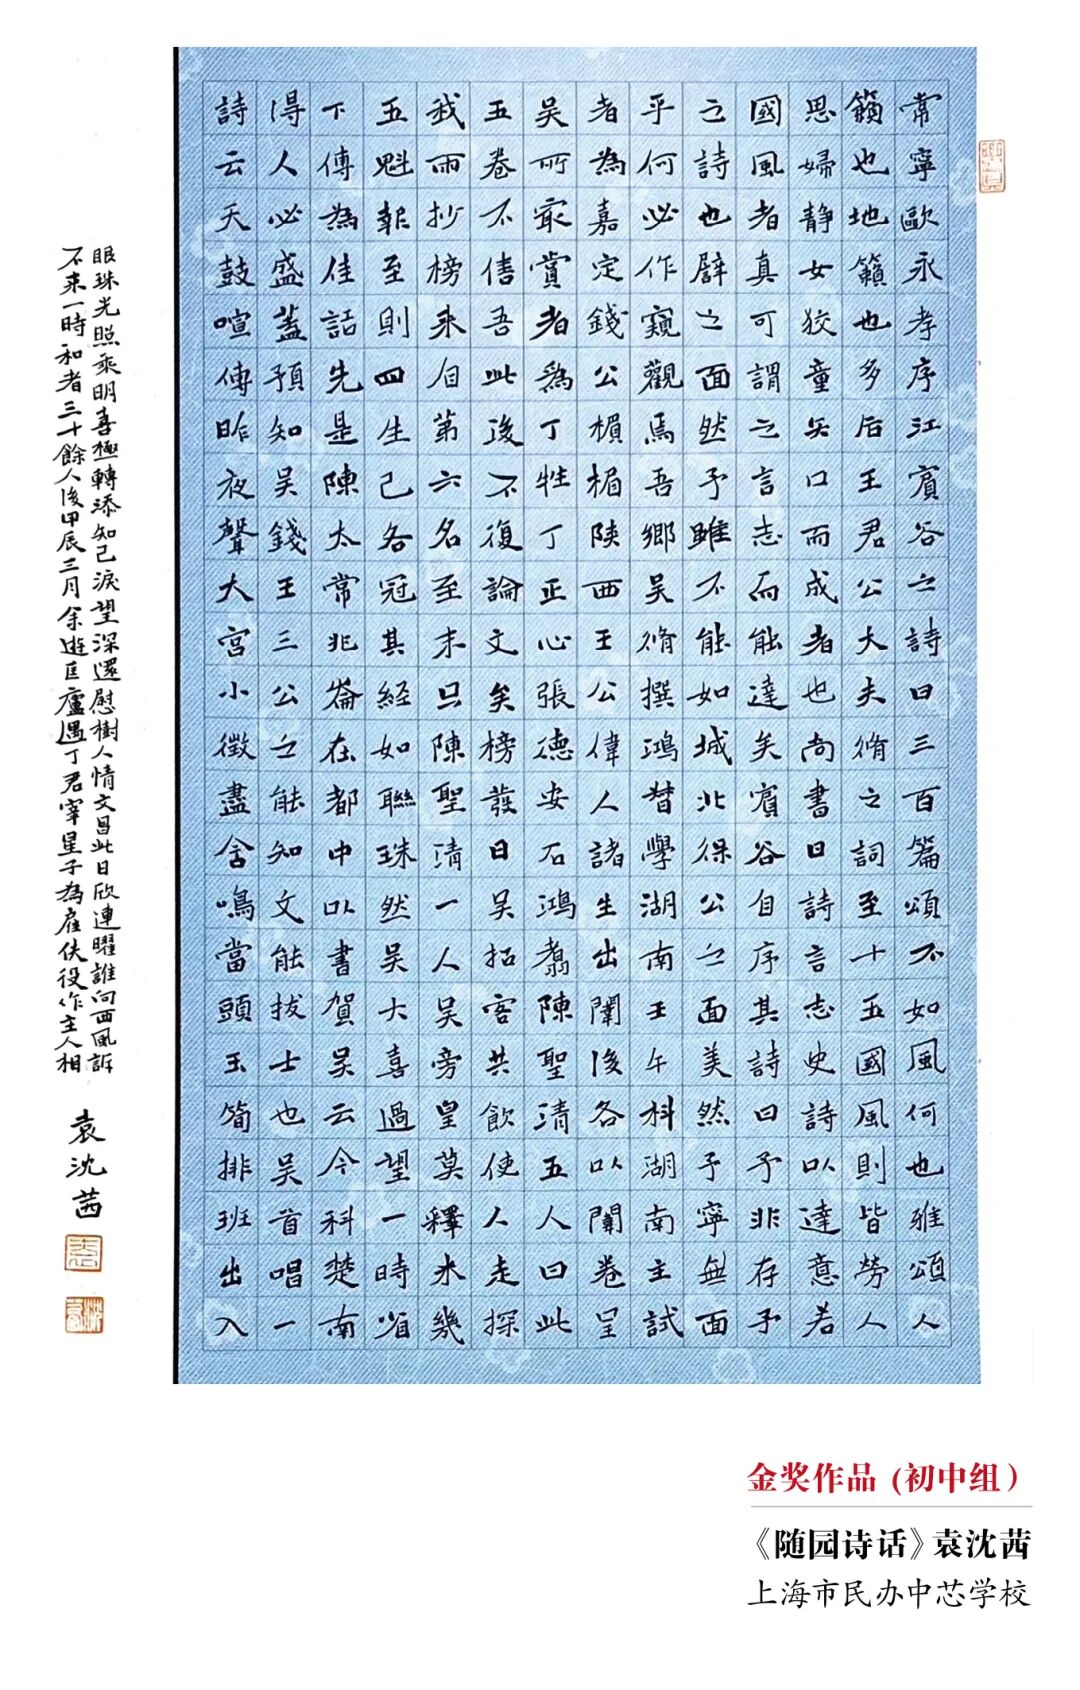 常寧歐永孝序江賓谷之詩曰三百篇頌不如風何也雅頌人
籟也地籟也多后王君公大夫脩之詞至十五國風則皆勞人
思婦静女狡童矢口而成者也尚書曰詩言志史詩以達意若
國風者真可謂之言志而能達矣賓谷自序其詩曰予非存予
之詩也譬之面然予雖不能如城北徐公之面美然予寧無面
乎何必作窺觀焉吾鄉吳脩撰鴻督學湖南壬午科湖南主試
者為嘉定錢公楣陝西王公偉人諸生出闈後各以闈卷呈
吳所最賞者為丁牲丁正心張德安石鴻翥陳聖清五人曰此
五卷不售吾此後不復論文矣榜發日吳招客共飲使人走探
我雨抄榜来自第六名至末只陳聖清一人吳旁皇莫釋未幾
五魁報至則四生已各冠其經如聯珠然吳大喜過望一時省
下傳為佳話先是陳太常兆崙在都中以書賀吳云今科楚南
得人必盛蓋預知吳錢王三公之能知文能拔士也吳首唱一
詩云天鼓喧傳昨夜聲大宫小徵盡含鳴當頭玉筍排班出入
眼珠光照乘明喜極轉添知己淚望深還慰樹人情文昌此日欣連曜誰向西風訴
不来一時和者三十餘人後甲辰三月余遊匡廬遇丁君宰星子為雇伕役作主人相
袁沈茜
金奖作品（初中组）
《随园诗话》袁沈茜
上海市民办中芯学校